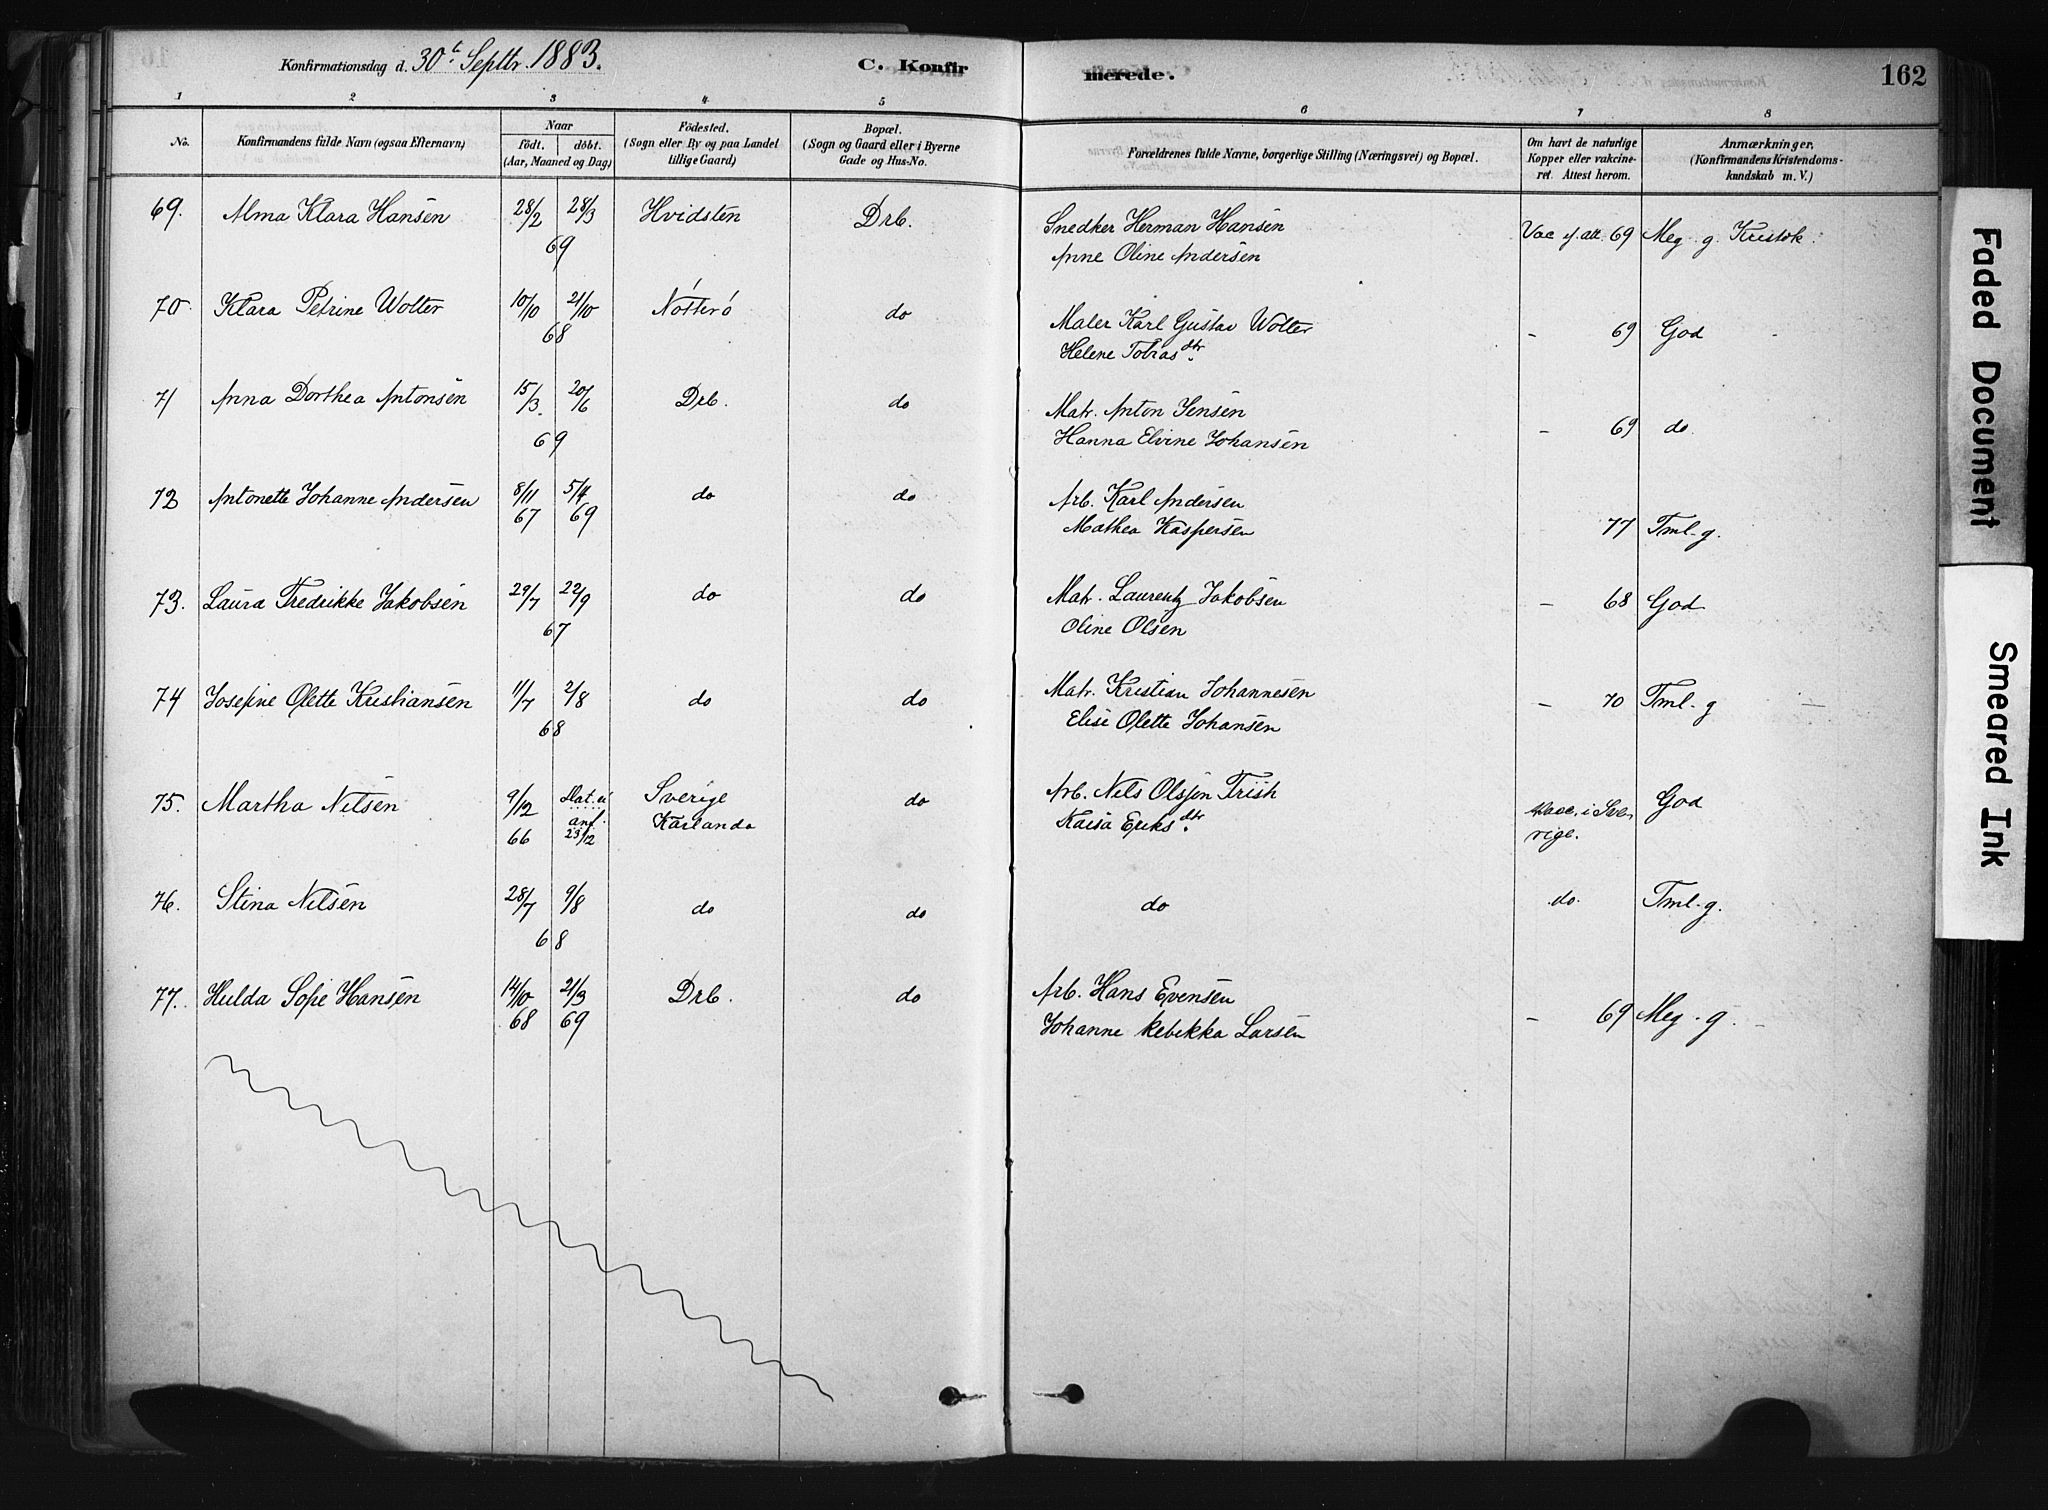 Konfirmationsdag d. 30te Septbr. 1883.
C. Konfir
merede.
162
1 2 3 4 5 6 7 8
No.
Konfirmandens fulde Navn (ogsaa Efternavn)
Naar
födt. döbt.
(Aar, Maaned og Dag)
Födested.
(Sogn eller By og paa Landet
tillige Gaard)
Bopæl.
(Sogn og Gaard eller i Byerne
Gade og Hus-No.
Forældrenes fulde Navne, borgerlige Stilling (Næringsvei) og Bopæl.
Om havt de naturlige
Kopper eller vakcine-
ret. Attest herom.
Anmærkninger.
(Konfirmandens Kristendoms-
kundskab m. V.)
69. Alma Klara Hansen 28/2 28/3 Hvidsten Drb. Snedker Herman Hansen Vac. att. 69 Meg. g. Kristdk.
69 Anne Oline Andersen
70. Klara Petrine Wolter 10/10 21/10 Nötterö do Maler Karl Gustav Wolter - 69 God
68 Helene Tobiasdtr.
71 Anna Dorthea Antonsen 15/3. 20/6 Drb. do Matr. Anton Jensen
69 Hanna Elvine Johansen - 69 do
72 Antonette Johanne Andersen 8/11 5/4 do do Arb. Karl Andersen
67 69 Mathea Kaspersen 77 Tml. g.
73. Laura Fredrikke Jakobsen 29/7 22/9 do do Matr. Laurentz Jakobsen - 68 God
67 Oline Olsen
74 Josefine Olette Kristiansen 11/7 2/8 do do Matr. Kristian Johannesen - 70 Tml. g
68 Elise Olette Johansen
75. Martha Nilsen 9/12 Dat. ei Sverige do Arb. Nils Olsen Frish Vacc. i Sve- God
66 anf. 23/12 Karlanda Kaisa Eriksdtr. rige.
76. Stina Nilsen 28/7 9/8 do do do do. Tml. g.
68
77. Hulda Sofie Hansen 14/10 21/3 Drb. do Arb. Hans Evensen
68 69 Johanne Rebekka Larsen - 69 Meg. g.
Faded Document
Smeared Ink